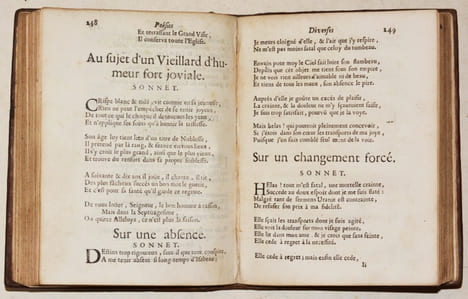 248 Poësies
Et terrassant le Grand Visir,
Il conserva toute l'Eglise.
Au sujet d'un Vieillard d'hu-
meur fort joviale.
SONNET.
Crespe blanc & ridé, vit comme en sa jeunesse,
Rien ne peut l'empescher de se tenir joyeux,
De tout ce qui le choque il détourne les yeux,
Et n'applique ses soins qu'à bannir la tristesse.
Son âge luy tient lieu d'un titre de Noblesse,
Il pretend par là rang, & seance en tous lieux,
Il s'y croit le plus grand, ainsi que le plus vieux,
Et trouve du renfort dans sa propre foiblesse.
A soixante & dix ans il jouë, il chante, il rit,
Des plus fâcheux succés un bon mot le guerit,
Et c'est pour sa santé qu'il garde ce regime.
De vous loüer, Seigneur, le bon homme a raison,
Mais dans la Septuagesime,
On quitte Alleluya, ce n'est plus la saison.
Sur une absence.
SONNET.
Destins trop rigoureux, sans il que tout conspire,
A me tenir absent si long-temps d'Isabeau;
Diverses 249
Je meurs éloigné d'elle, & l'air que j'y respire,
Ne m'est pas moins fatal que celuy du tombeau.
Envain pour moy le Ciel fait luire son flambeau,
Depuis que cét objet me tient sous son empire,
Je ne vois rien ailleurs d'aimable ni de beau,
Et tiens de tous les maux, son absence le pire.
Auprés d'elle je gouste un excés de plaisir,
La crainte, & la douleur ne m'y sçauroient saisir,
Je suis trop satisfait, pourvû que je la voye.
Mais helas! qui pourroit pleinement concevoir,
Si j'étois dans son cœur les transports de ma joye,
Puisque j'en suis comblé seul de la voir.
Sur un changement forcé.
SONNET.
Helas! tout m'est fatal, une mortelle crainte,
Succede au doux espoir dont je me suis flaté:
Malgré tant de sermens Uranie est contrainte,
De refuser son prix à ma fidelité.
Elle sçait les transports dont je suis agité,
Elle voit la douleur sur mon visage peinte,
Elle lit dans mon ame, & je crois que sans feinte,
Elle cede à regret à la necessité.
Elle cede à regret; mais enfin elle cede,
Ii